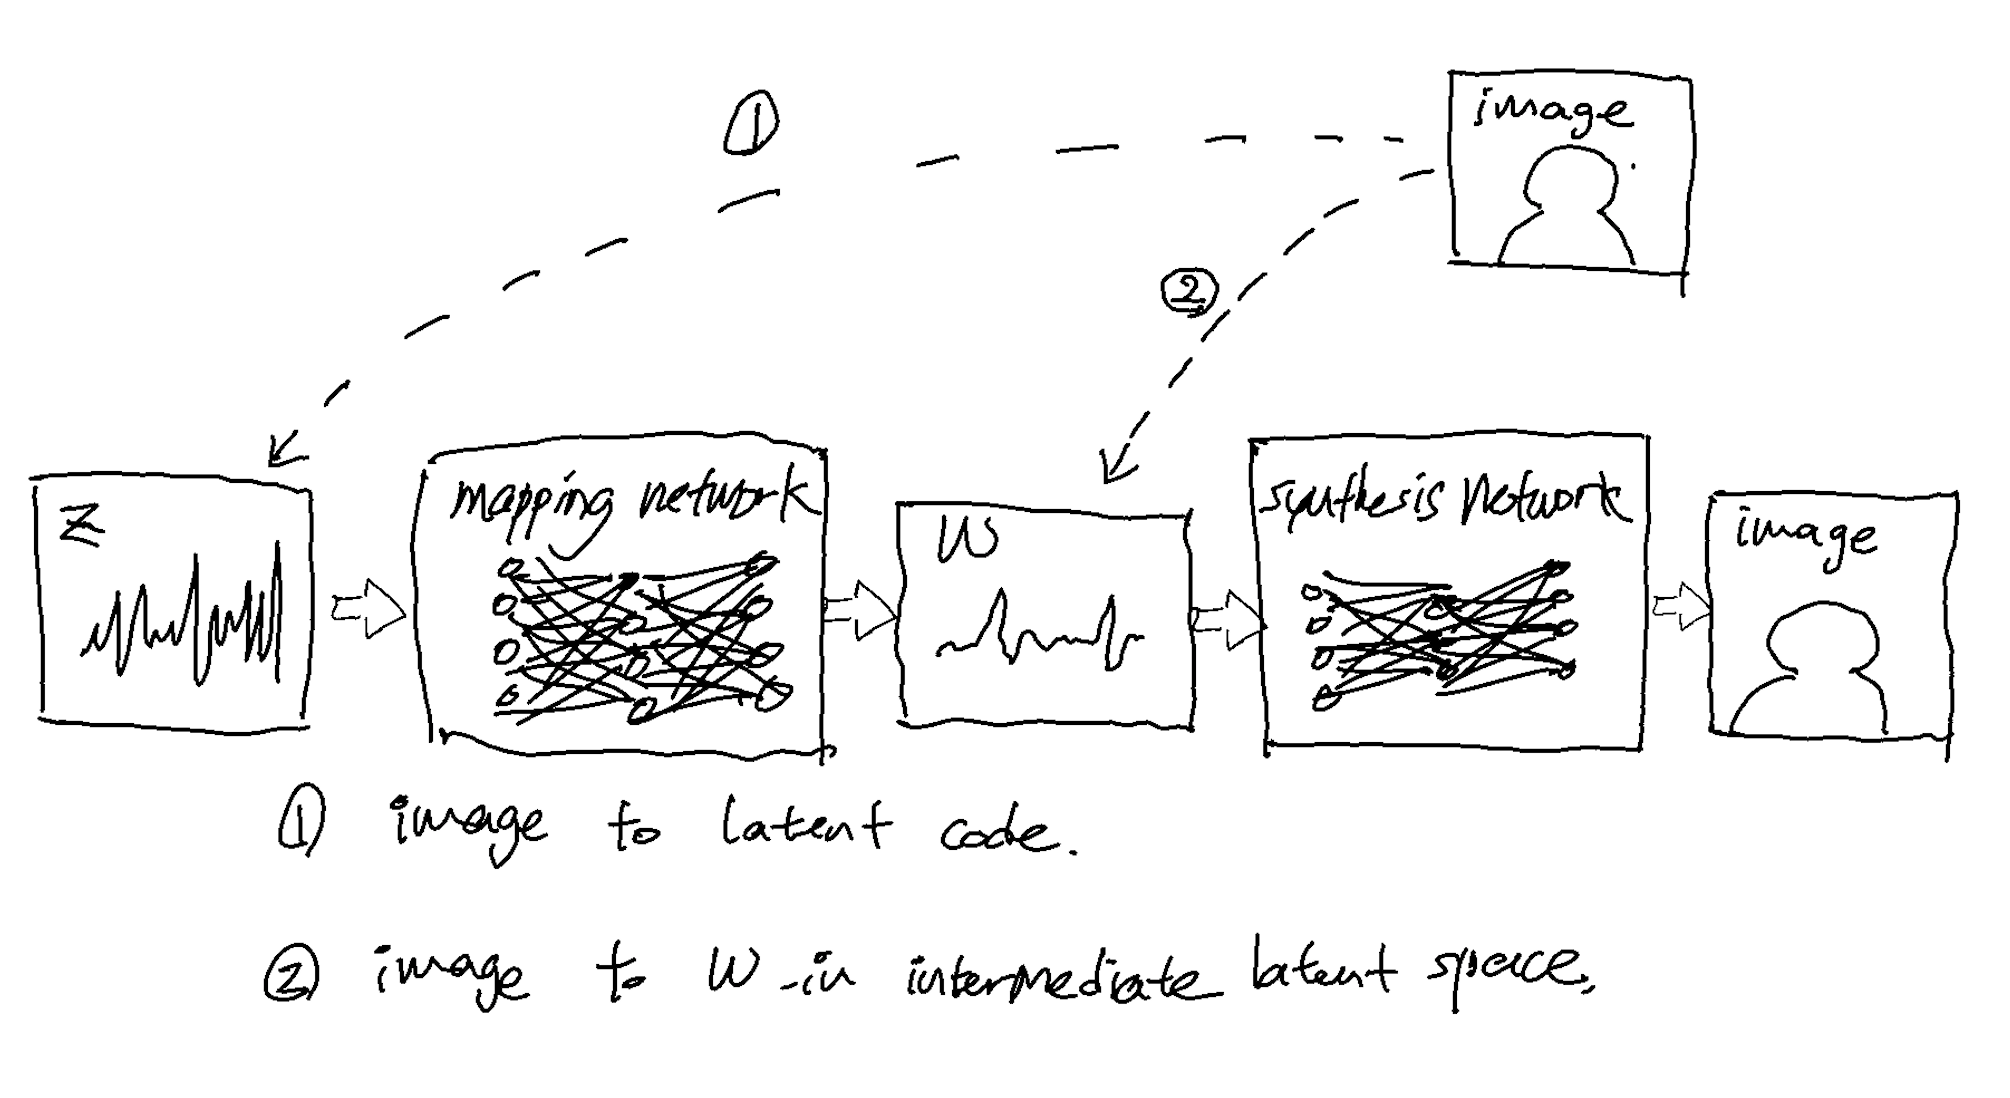 ①
image
②
z
mapping network
w
synthesis network
image
① image to latent code.
② image to w in intermediate latent space.